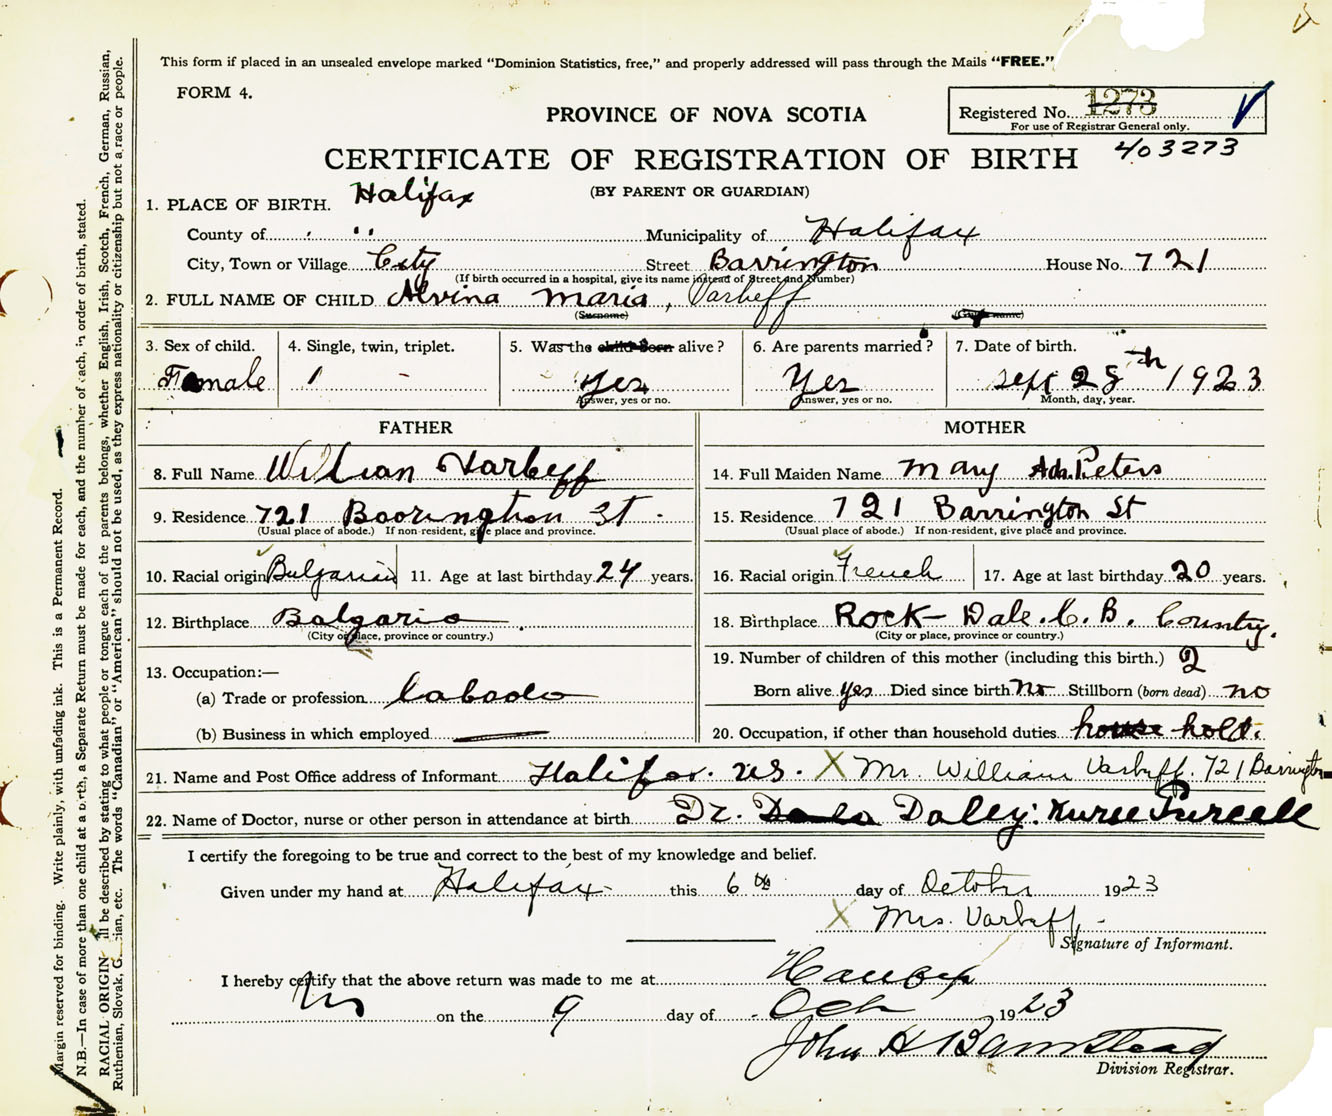 This form if placed in an unsealed envelope marked "Dominion Statistics, free," and properly addressed will pass through the Mails "FREE."
FORM 4.
PROVINCE OF NOVA SCOTIA
Registered No. 1273
For use of Registrar General only.
403273
CERTIFICATE OF REGISTRATION OF BIRTH
(BY PARENT OR GUARDIAN)
1. PLACE OF BIRTH. Halifax
County of " Municipality of Halifax
City, Town or Village City Street Barrington House No. 721
(If birth occurred in a hospital, give its name instead of Street and Number)
2. FULL NAME OF CHILD Alvina Maria, Varbeff
(Surname) (Given name)
3. Sex of child. 4. Single, twin, triplet. 5. Was the child born alive? 6. Are parents married? 7. Date of birth.
Female 1 - Yes Yes Sept 28th 1923
Answer, yes or no. Answer, yes or no. Month, day, year.
FATHER MOTHER
8. Full Name William Varbeff 14. Full Maiden Name Mary Peters
9. Residence 721 St. 15. Residence 721 Barrington St
(Usual place of abode.) If non-resident, give place and province. (Usual place of abode.) If non-resident, give place and province.
10. Racial origin Bulgarian 11. Age at last birthday 24 years. 16. Racial origin French 17. Age at last birthday 20 years.
12. Birthplace Balgario 18. Birthplace Rock Dale. C. B. Country.
(City or place, province or country.) (City or place, province or country.)
13. Occupation:— 19. Number of children of this mother (including this birth.) 2
(a) Trade or profession Born alive yes Died since birth no Stillborn (born dead) no
(b) Business in which employed 20. Occupation, if other than household duties house hold.
21. Name and Post Office address of Informant Halifax. NS. X Mr. William Varbeff. 721 Barrington
22. Name of Doctor, nurse or other person in attendance at birth Dr. Daley: Nurse Purcell
I certify the foregoing to be true and correct to the best of my knowledge and belief.
Given under my hand at Halifax this 6th day of October 1923
X Mrs. Varbeff
Signature of Informant.
I hereby certify that the above return was made to me at Halifax
NS on the 9 day of Oct 1923
John H Barnstead
Division Registrar.
Margin reserved for binding. Write plainly, with unfading ink. This is a Permanent Record.
N.B.—In case of more than one child at a birth, a Separate Return must be made for each, and the number of each, in order of birth, stated.
RACIAL ORIGIN will be described by stating to what people or tongue each of the parents belongs, whether English, Irish, Scotch, French, German, Russian,
Ruthenian, Slovak, etc. The words "Canadian" or "American" should not be used, as they express nationality or citizenship but not a race or people.